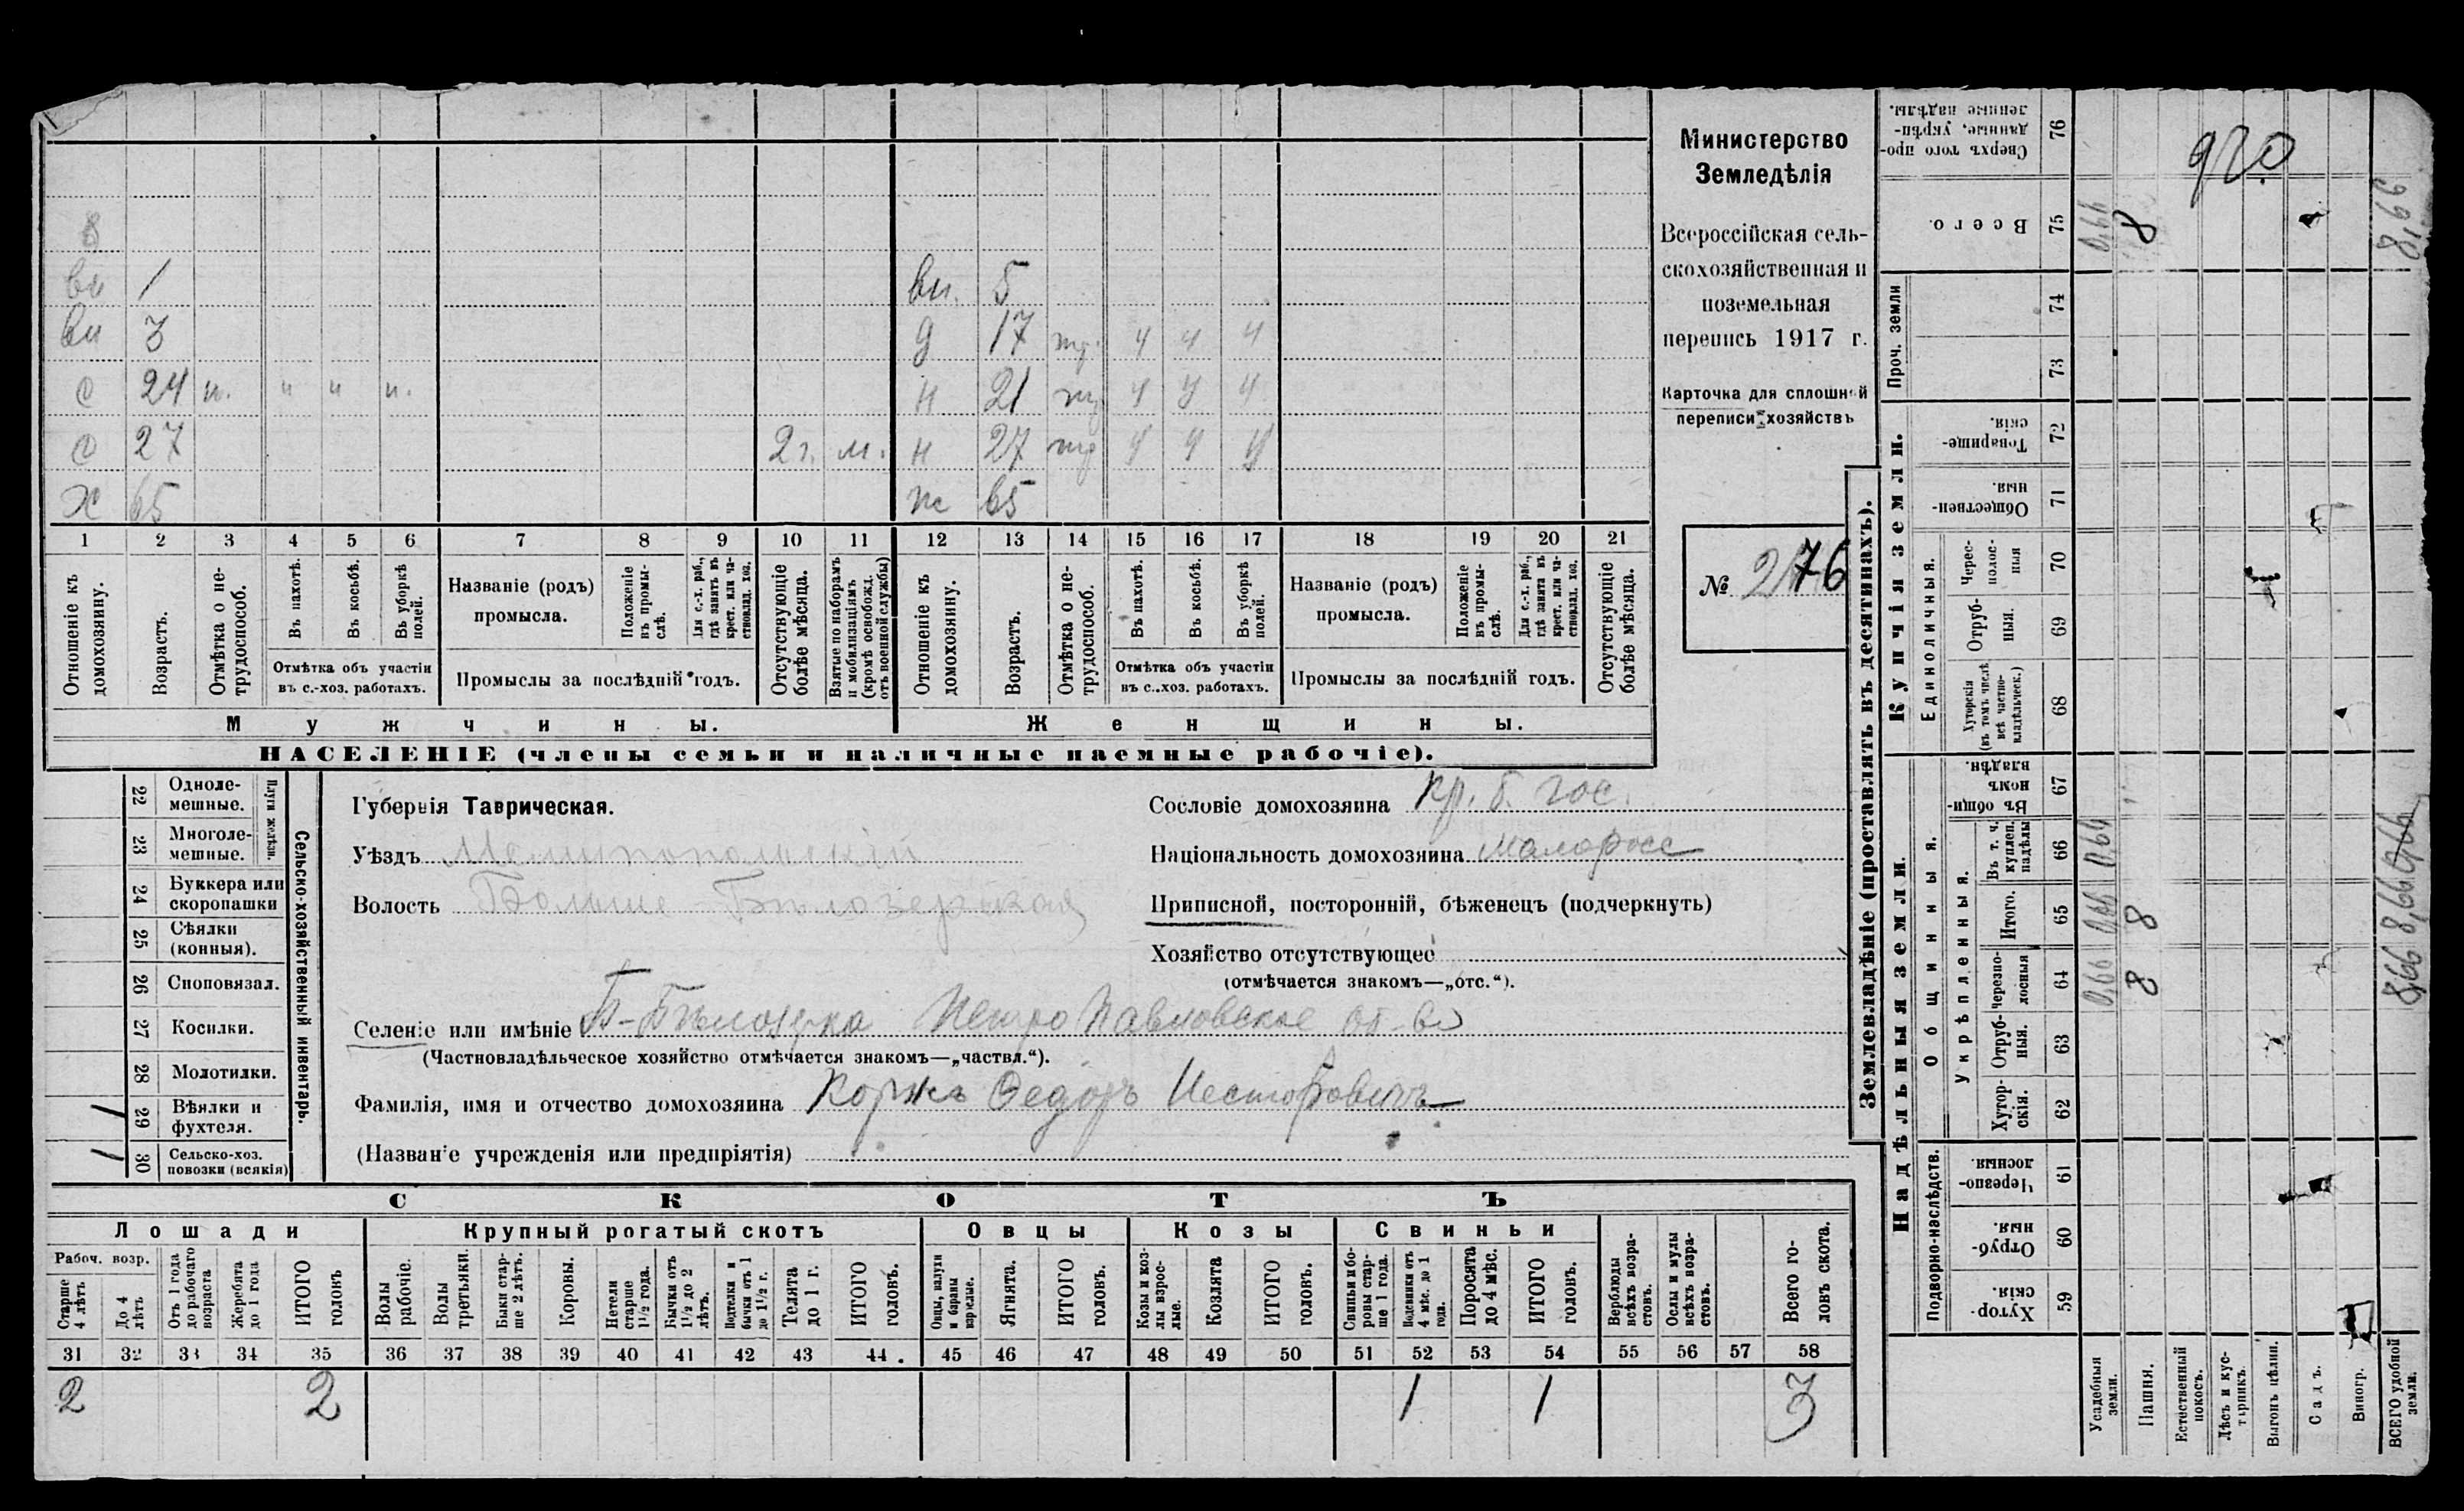 8
вн 1 вн. 5
вн 3 д 17 тр. ч ч ч
с 24 н. н н н. н 21 тр ч ч ч
с 27 2 г. м. н 27 тр ч ч ч
х 65 ж 65
1 2 3 4 5 6 7 8 9 10 11 12 13 14 15 16 17 18 19 20 21
Отношеніе къ домохозяину.
Возрастъ.
Отмѣтка о не-
трудоспособ.
Въ пахотѣ.
Въ косьбѣ.
Въ уборкѣ
полей.
Отмѣтка объ участіи
въ с.-хоз. работахъ.
Названіе (родъ)
промысла.
Положеніе
въ промы-
слѣ.
Для с.-х. раб.,
гдѣ занятъ въ
крест. или ча-
стновлад. хоз.
Промыслы за послѣдній годъ.
Отсутствующіе
болѣе мѣсяца.
Взятые по наборамъ
и мобилизаціямъ
(кромѣ освобожд.
отъ военной службы)
Отношеніе къ
домохозяину.
Возрастъ.
Отмѣтка о не-
трудоспособ.
Въ пахотѣ.
Въ косьбѣ.
Въ уборкѣ
полей.
Отмѣтка объ участіи
въ с..хоз. работахъ.
Названіе (родъ)
промысла.
Положеніе
въ промы-
слѣ.
Для с.-х. раб.,
гдѣ занята въ
крест. или ча-
стновлад. хоз.
Промыслы за послѣдній годъ.
Отсутствующіе
болѣе мѣсяца.
Мужчины.
Женщины.
НАСЕЛЕНІЕ (члены семьи и наличные наемные рабочіе).
Министерство
Земледѣлія
Всероссійская сель-
скохозяйственная и
поземельная
перепись 1917 г.
Карточка для сплошной
переписи хозяйствъ
№ 276
22 Однолe-
мешные.
23 Многоле-
мешные.
Плуги желѣзн.
24 Буккера или
скоропашки
25 Сѣялки
(конныя).
26 Сноповязал.
27 Косилки.
28 Молотилки.
1 29 Вѣялки и
фухтеля.
1 30 Сельско-хоз.
повозки (всякія)
Сельско-хозяйственный инвентарь.
Губернія Таврическая.
Уѣздъ Мелитопольскій
Волость Больше-Бѣлозерская
Селеніе или имѣніе Б-Бѣлозерка Петро Павловское об-во
(Частновладѣльческое хозяйство отмѣчается знакомъ—„частвл.“).
Фамилія, имя и отчество домохозяина Коржъ Федоръ Несторовичъ
(Названіе учрежденія или предпріятія)
Сословіе домохозяина кр. б. гос.
Національность домохозяина малоросс
Приписной, посторонній, бѣженецъ (подчеркнуть)
Хозяйство отсутствующее
(отмѣчается знакомъ—„отс.“).
СКОТЪ
Лошади
Крупный рогатый скотъ
Овцы
Козы
Свиньи
Рабоч. возр.
Старше
4 лѣтъ
До 4
лѣтъ
Отъ 1 года
до рабочаго
возраста
Жеребята
до 1 года
ИТОГО
головъ
Волы
рабочіе.
Волы
третьяки.
Быки стар-
ше 2 лѣтъ.
Коровы.
Нетели
старше
1½ года.
Бычки отъ
1½ до 2
лѣтъ.
Подтелки и
бычки отъ 1
до 1½ г.
Телята
до 1 г.
ИТОГО
головъ.
Овцы, валухи
и бараны
взрослые.
Ягнята.
ИТОГО
головъ.
Козы и коз-
лы взрос-
лые.
Козлята
ИТОГО
головъ.
Свиньи и бо-
ровы стар-
ше 1 года.
Подсвинки отъ
4 мѣс. до 1
года.
Поросята
до 4 мѣс.
ИТОГО
головъ.
Верблюды
всѣхъ возра-
стовъ.
Ослы и мулы
всѣхъ возра-
стовъ.
Всего го-
ловъ скота.
31 32 33 34 35 36 37 38 39 40 41 42 43 44 45 46 47 48 49 50 51 52 53 54 55 56 57 58
2 2 1 1 3
Землевладѣніе (проставлять въ десятинахъ).
Надѣльныя земли.
Купчія земли.
Проч. земли
Подворно-наслѣдств.
Общинныя.
Укрѣпленныя.
Единоличныя.
Сверхъ того про-
данные, укрѣп-
ленные надѣлы.
76
920
Всего.
75
0,66
8
8,66
74
73
Товарище-
скія.
72
Обществен-
ныя.
71
Черес-
полос-
ныя
70
Отруб-
ныя.
69
Хуторскія
(въ томъ числѣ
всѣ частно-
владѣльческ.)
68
Въ общи-
номъ
владѣн.
67
Въ т. ч.
куплен.
надѣлы
66
0,66
0,66
Итого.
65
0,66
8
8,66
Черезпо-
лосныя
64
0,66
8
8,66
Отруб-
ныя.
63
Хутор-
скія.
62
Черезпо-
лосныя.
61
Отруб-
ныя.
60
Хутор-
скія.
59
Усадебныя
земли.
Пашня.
Естественный
покосъ.
Лѣсъ и кус-
тарникъ.
Выгонъ цѣлин.
Садъ.
Виногр.
ВСЕГО удобной
земли.